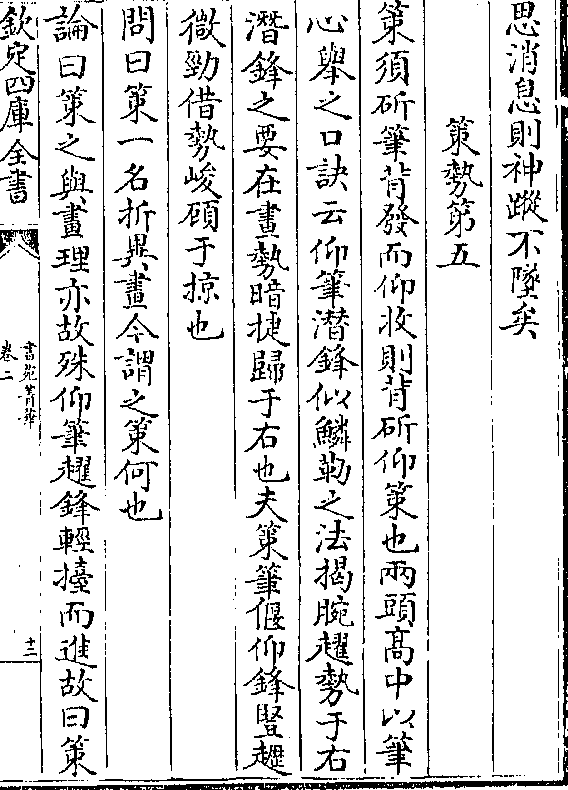 思消息則神蹤不墜矣
策勢第五
策須斫筆背發而仰收則背斫仰策也兩頭髙中以筆
心舉之口訣云仰筆潛鋒似鱗勒之法揭腕趯勢于右
潛鋒之要在畫勢暗捷歸于右也夫策筆偃仰鋒豎趯
微勁借勢峻頎于掠也
問曰策一名折異畫今謂之策何也
論曰策之與畫理亦故殊仰筆趯鋒輕擡而進故曰策
欽定四庫全書
書苑菁華
卷二
十二